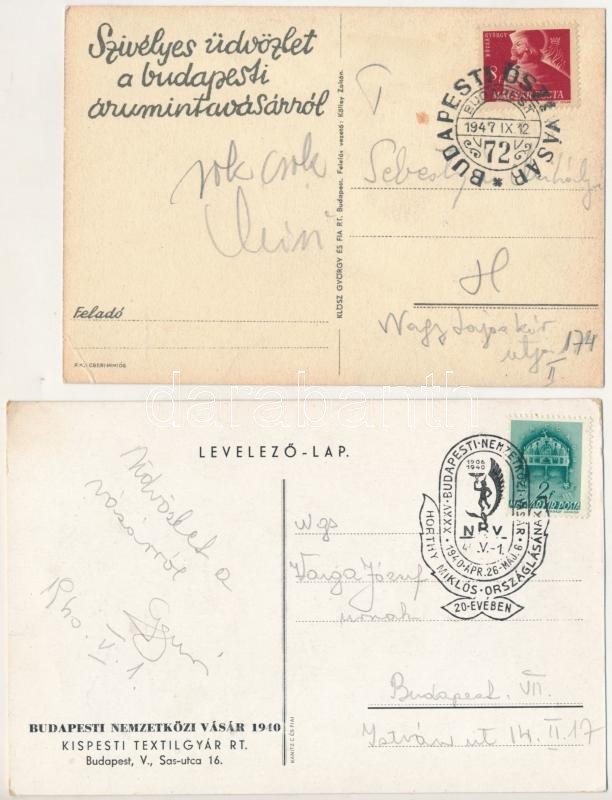 Szívélyes üdvözlet
a budapesti
árumintavásárról
sok csók
Feladó
KLÖSZ GYÖRGY ÉS FIA RT. Budapest. Felelős vezető: Költey Zoltán.
MAGYAR POSTA
BUDAPESTI ŐSZI VÁSÁR
BUDAPEST
1947 IX. 12
72
T
H
174
II
darabanth
LEVELEZŐ-LAP.
Üdvözlet a
vásárról
1940. V. 1.
BUDAPESTI NEMZETKÖZI VÁSÁR 1940
KISPESTI TEXTILGYÁR RT.
Budapest, V., Sas-utca 16.
2f
MAGYAR POSTA
XXXV. BUDAPESTI NEMZETKÖZI VÁSÁR
1940 ÁPR. 26-MÁJ. 6
1906
1940
HORTHY MIKLÓS ORSZÁGLÁSÁNAK
20-ÉVÉBEN
Varga József
Budapest. VII.
István út 14. II. 17